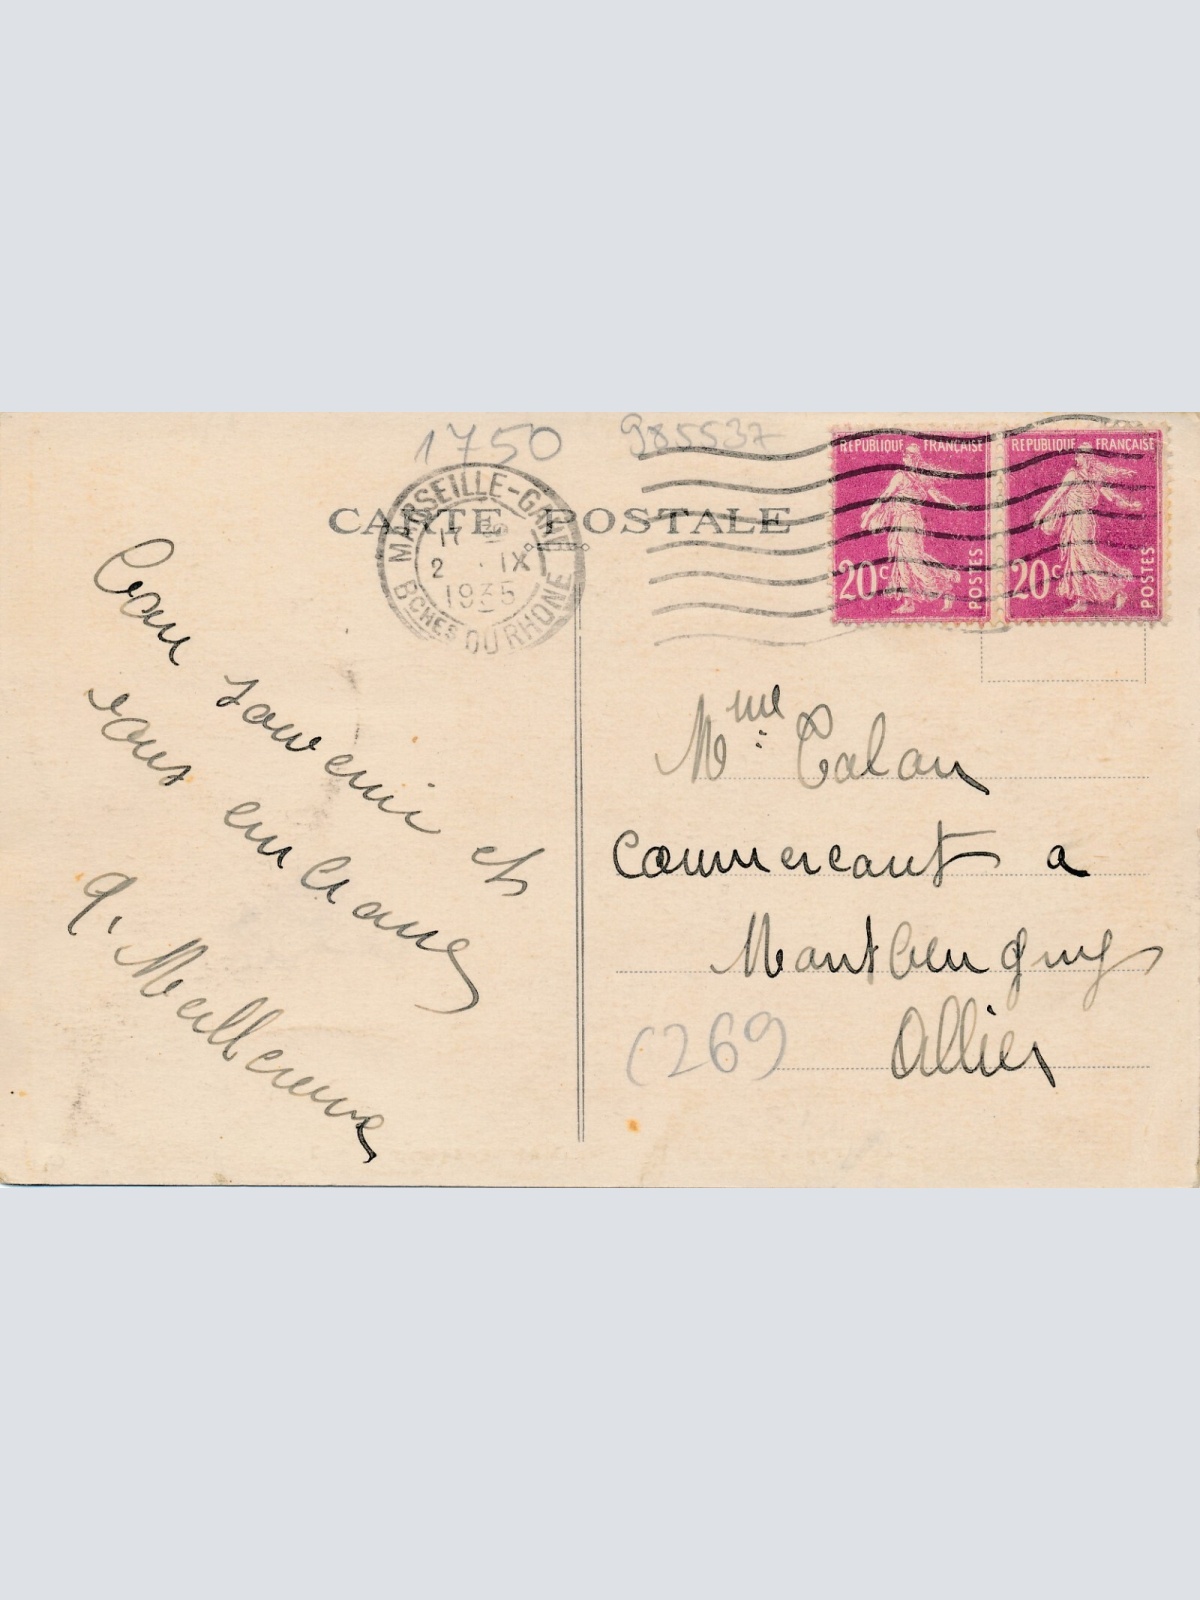 1750
985537
CARTE POSTALE
MARSEILLE-GARE
17 30
2 · IX
1935
BCHES DU RHONE
REPUBLIQUE FRANÇAISE
20c
POSTES
REPUBLIQUE FRANÇAISE
20c
POSTES
souvenir et
vous
Mme
Commercant a
Montbeugny
Allier
(269)